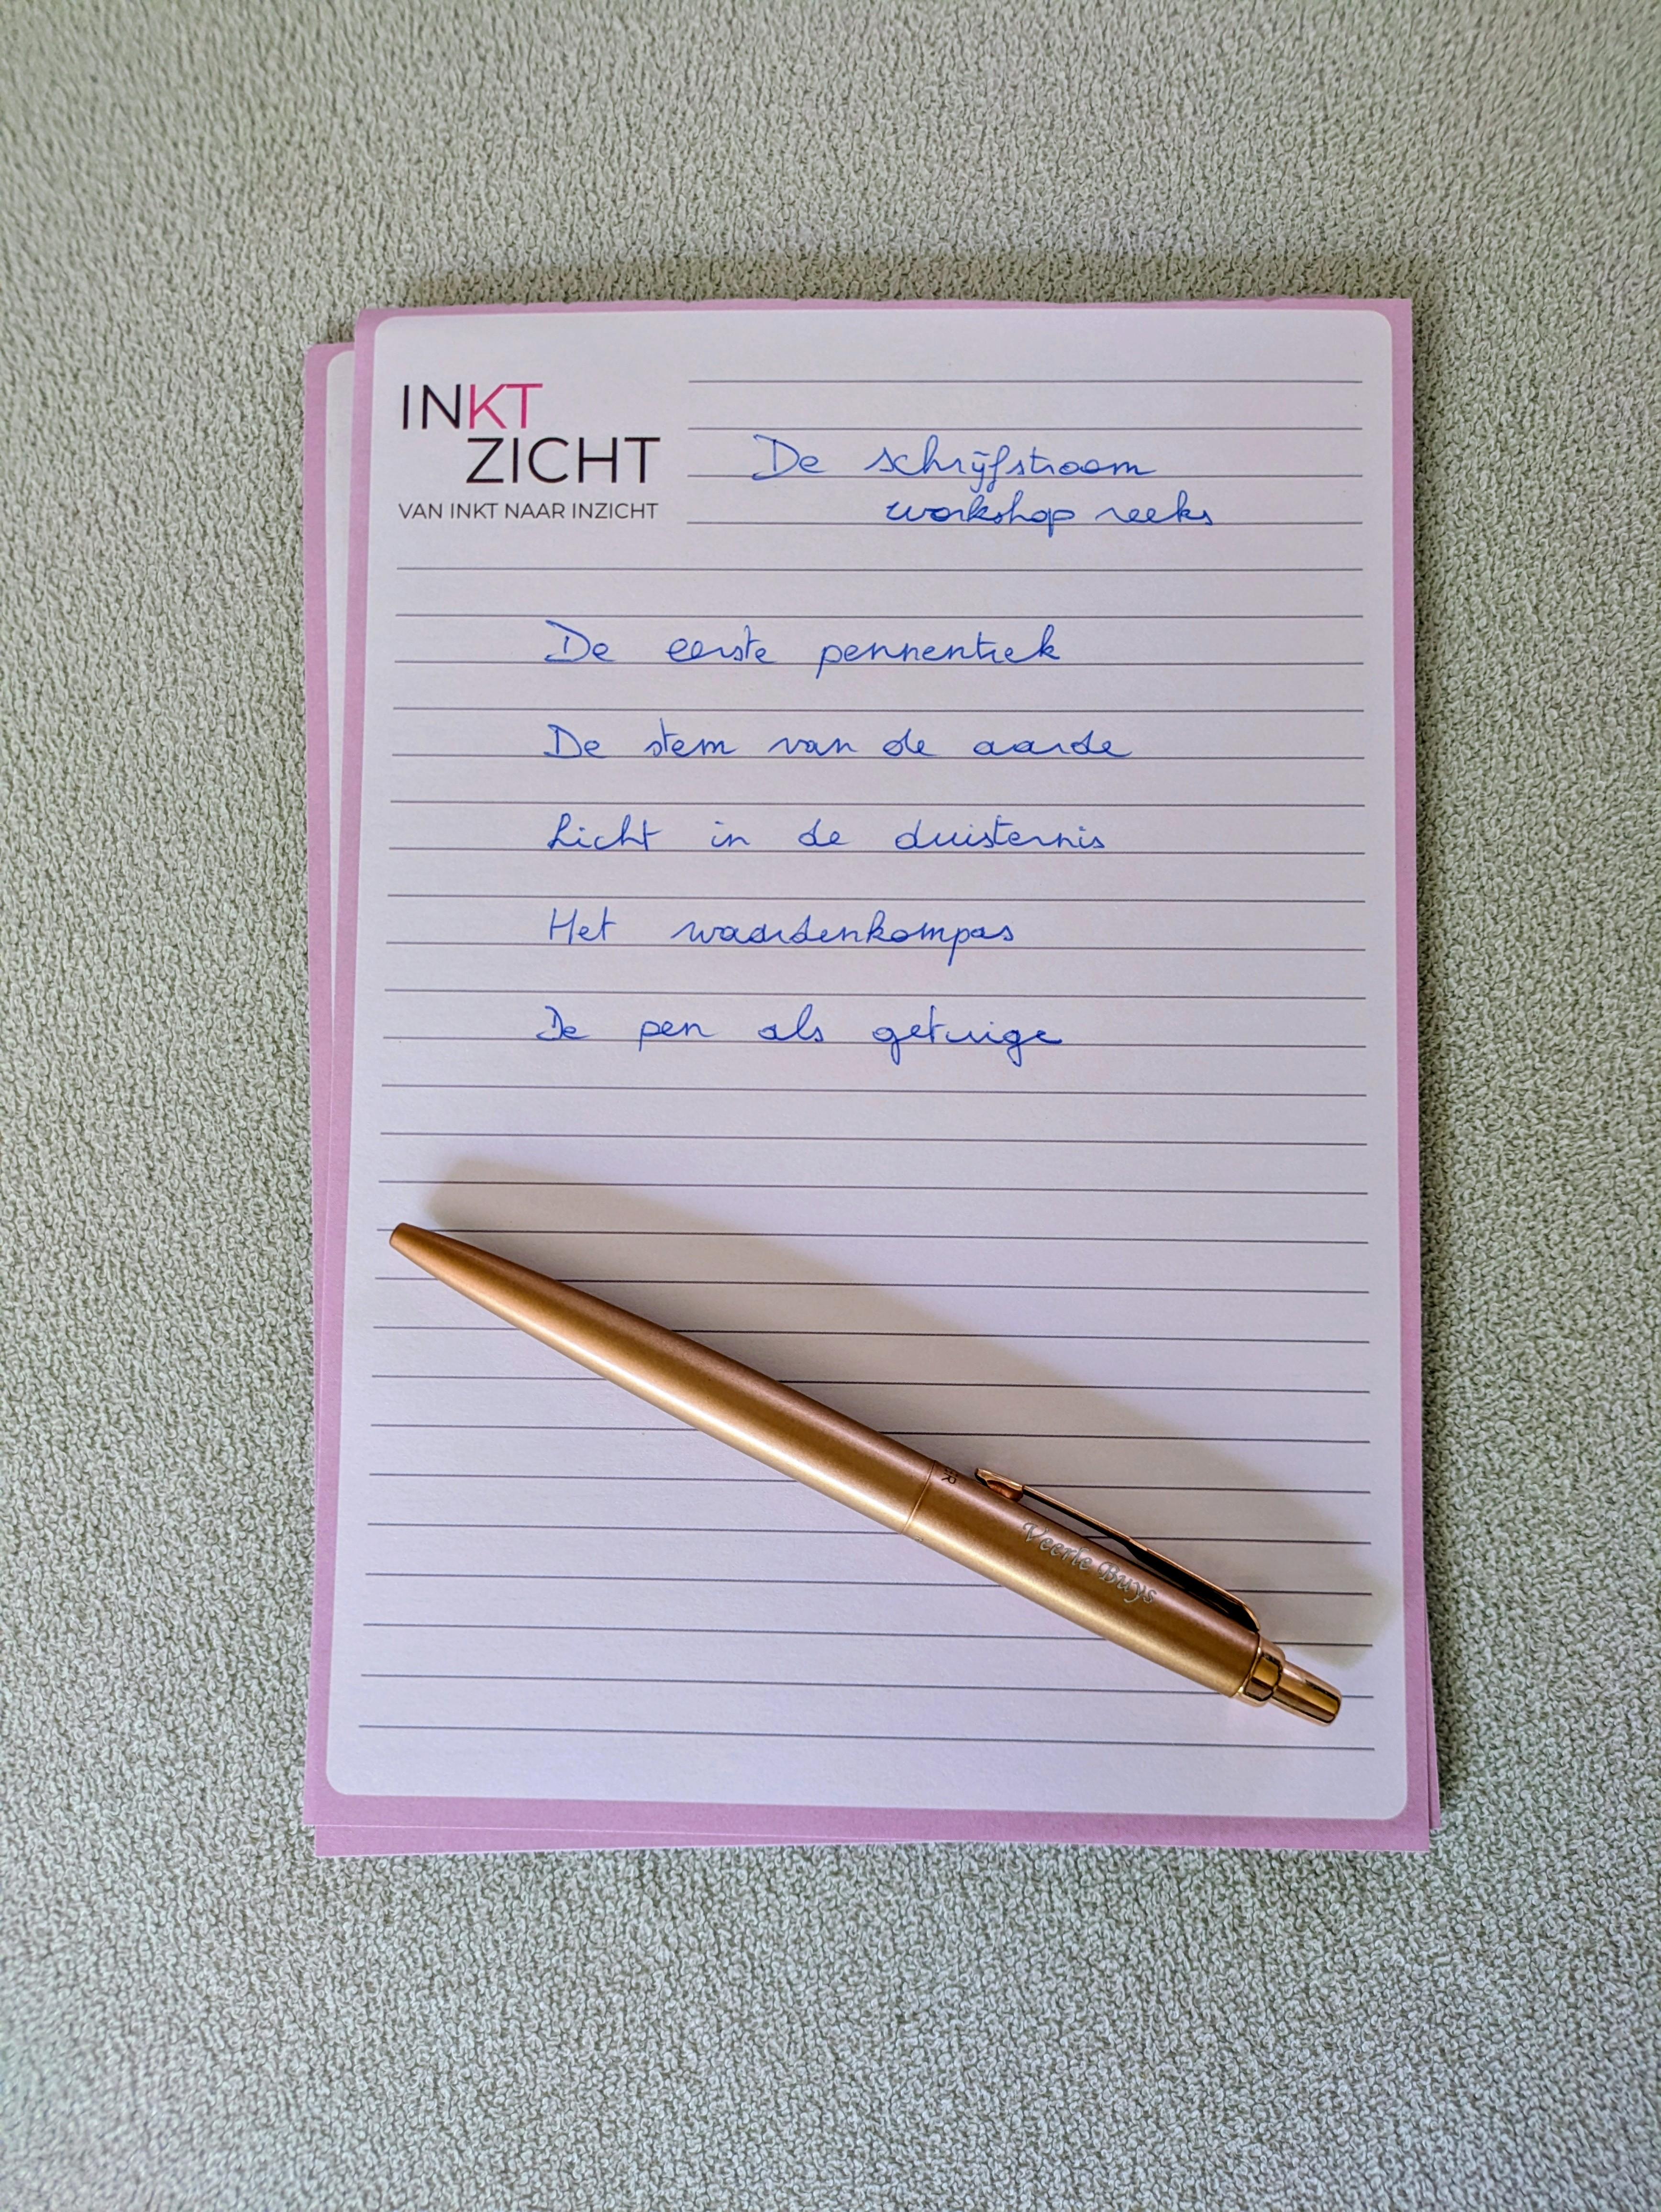 INKT
ZICHT
VAN INKT NAAR INZICHT
De schrijfstroom
workshop reeks
De eerste pennentrek
De stem van de aarde
Licht in de duisternis
Het waardenkompas
De pen als getuige
Veerle Buys